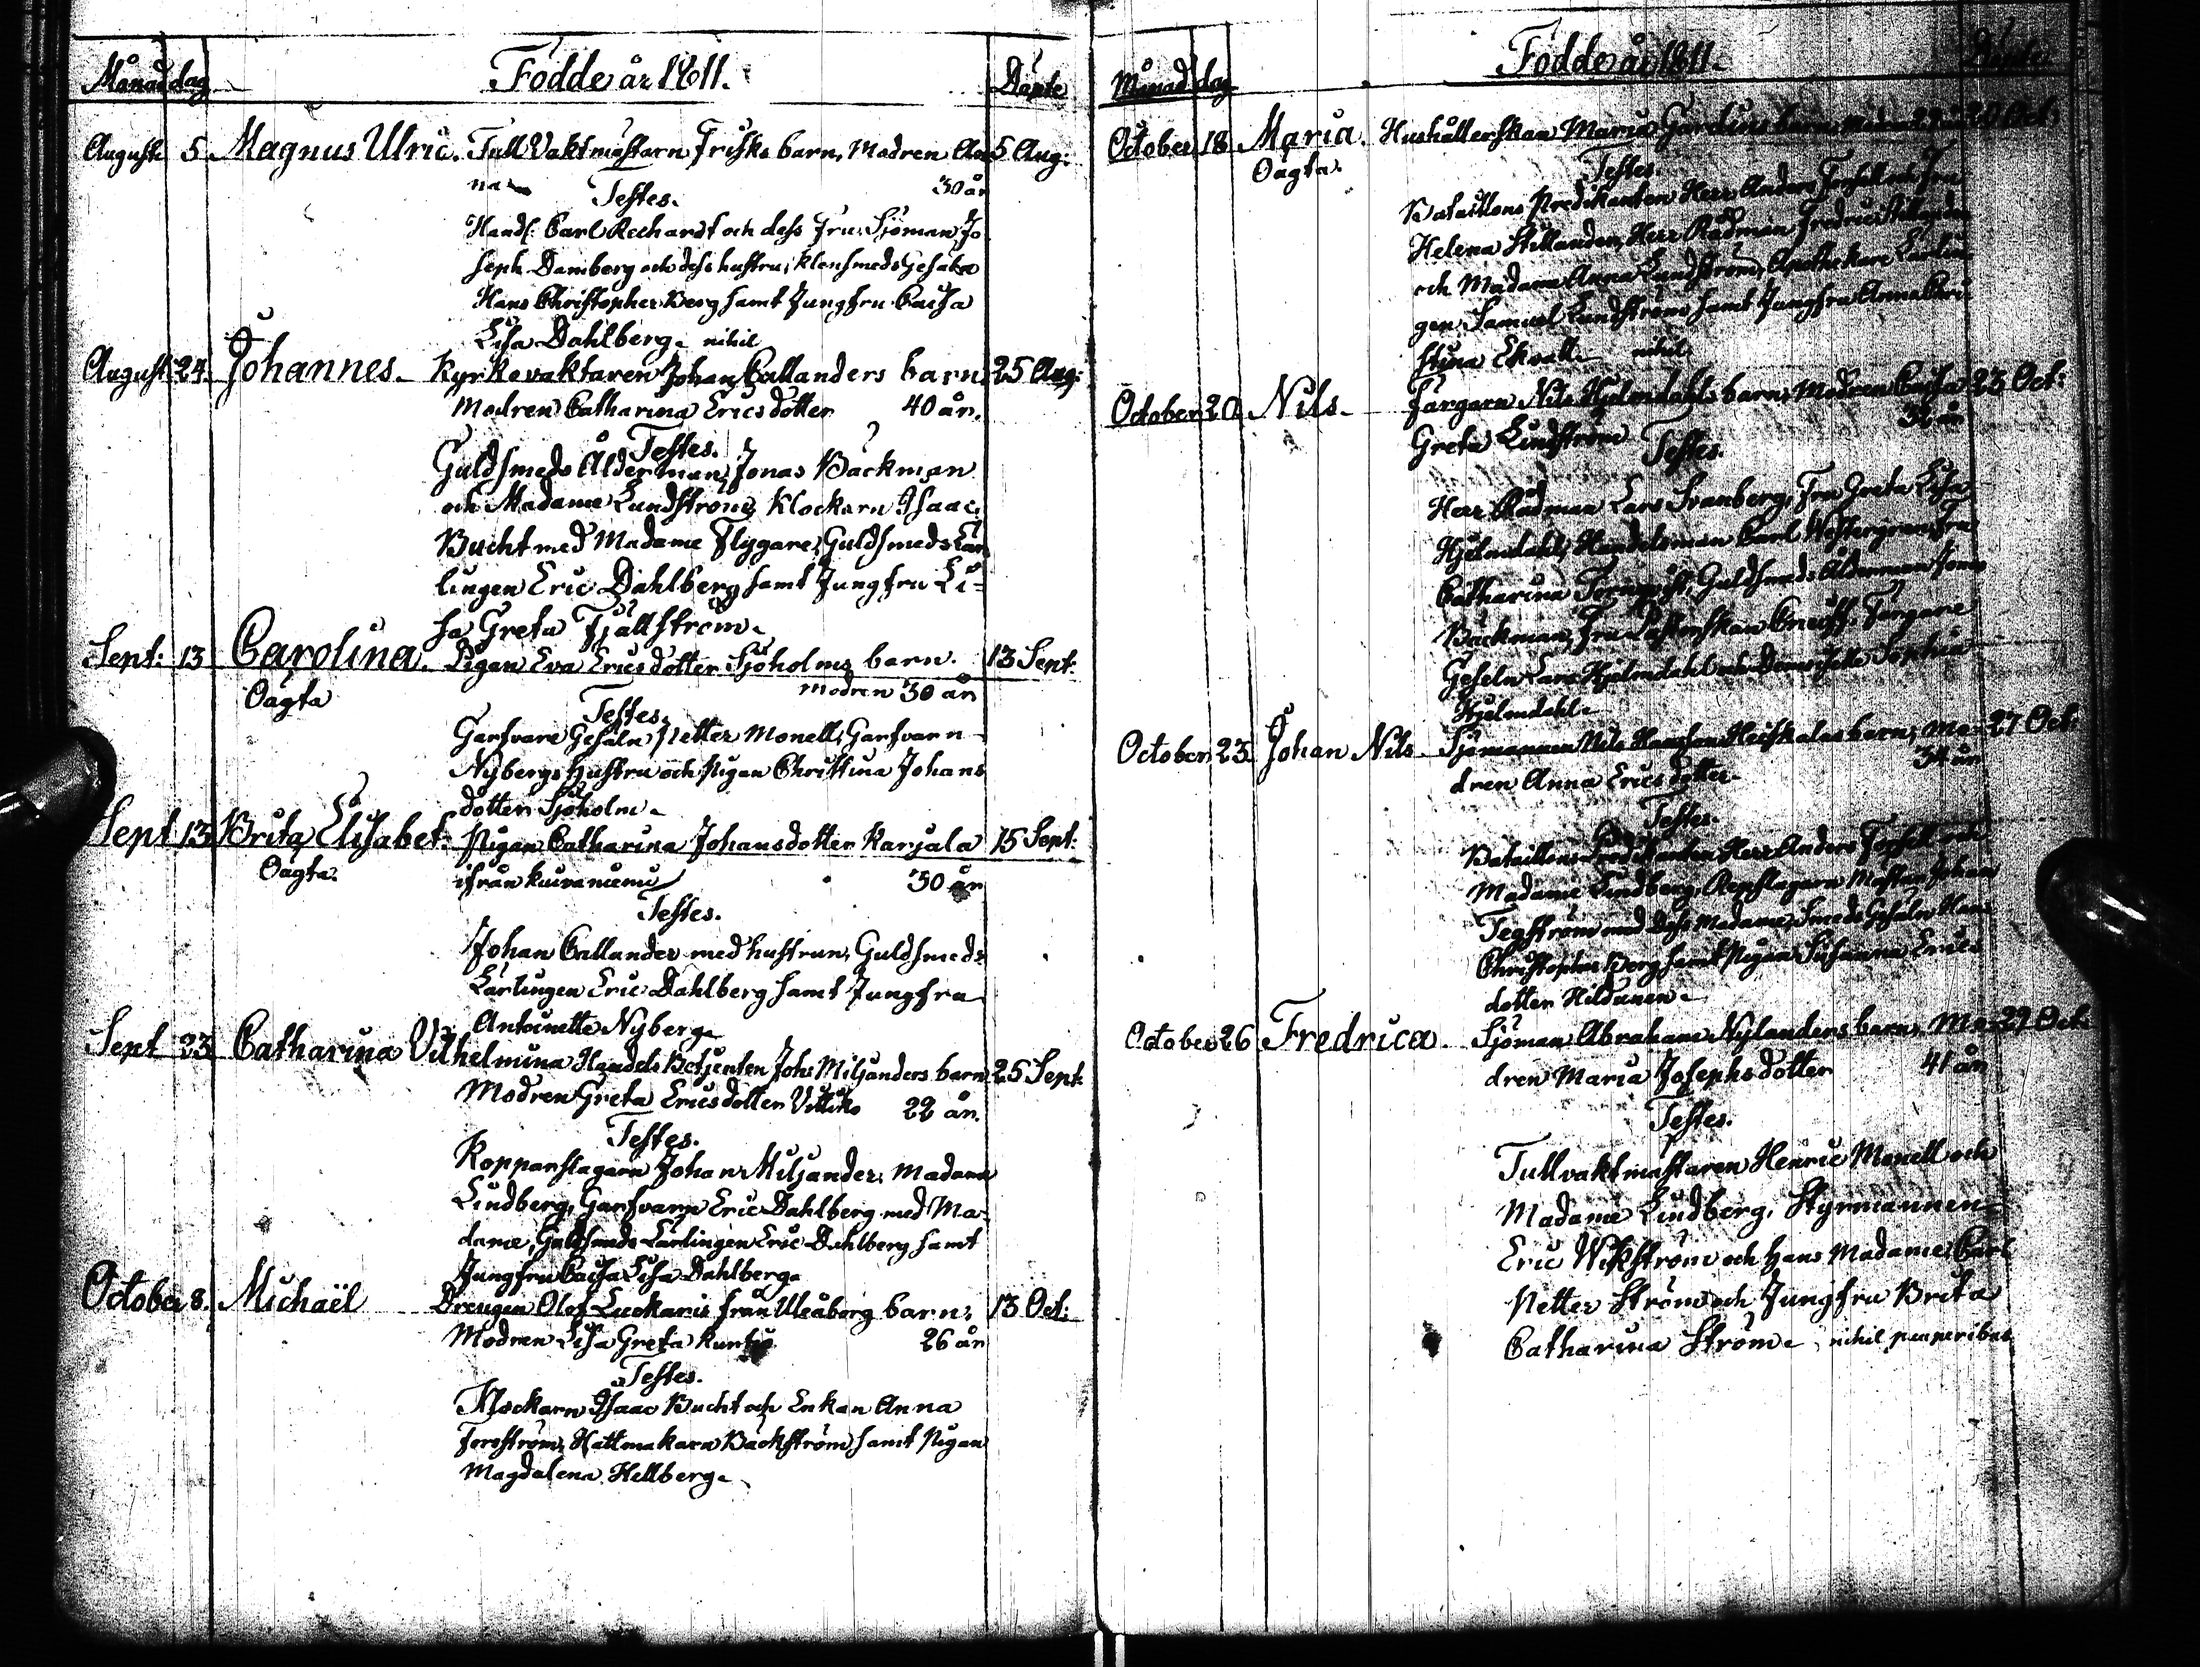 Månad dag Födde år 1811. Döpte
Augusti 5. Magnus Ulric. Tull Vaktmästarn Frisks barn, Modren An 5 Aug:
na 30 år
Testes.
Handl: Carl Rechardt och dess Fru, Sjöman Jo
seph Damberg och dess hustru, Klensmeds Gesälen
Hans Christopher Berg samt Jungfru Caisa
Lisa Dahlberg. nihil
August 24. Johannes. Kyrkovaktaren Johan Callanders barn 25 Aug:
Modren Catharina Ericsdotter 40 år.
Testes.
Guldsmeds Ålderman Jonas Bäckman
och Madame Lundström, Klockarn Isaac
Bucht med Madame Flygare, Guldsmeds Lär
lingen Eric Dahlberg samt Jungfru Li-
sa Greta Fjällström.
Sept: 13 Carolina. Pigan Eva Ericsdotter Sjöholms barn. 13 Sept:
Oägta modren 30 år
Testes.
Garfvare Gesäln Petter Monell, Garfvarn
Nybergs Hustru och Pigan Christina Johans
dotter Sjöholm.
Sept 13 Brita Elisabet. Pigan Catharina Johansdotter Karjala 15 Sept:
Oägta. ifrån Kuivaniemi 30 år
Testes.
Johan Callander med hustrun, Guldsmeds
Lärlingen Eric Dahlberg samt Jungfru
Antoinette Nyberg.
Sept 23 Catharina Vilhelmina Handels Betjenten Joh: Miljanders barn 25 Sept
Modren Greta Ericsdotter 22 år.
Testes.
Kopparslagarn Johan Miljander, Madame
Lindberg, Garfvarn Eric Dahlberg med Ma-
dame, Guldsmeds Lärlingen Eric Dahlberg samt
Jungfru Caisa Lisa Dahlberg.
October 8. Michaël Drengen Olof Luckaris från Uleåborg barn, 13 Oct:
Modren Lisa Greta 26 år
Testes.
Klockarn Isaac Bucht och Enkan Anna
Forsström, Hattmakarn Bäckström samt Pigan
Magdalena Hellberg.
Månad dag Födde år 1811. Döpte
October 18 Maria. Hushållerskan Maria Gardins barn 20 Oct:
Oägta. Testes.
Bataillons Predikanten Herr Anders
Helena Stillander, Herr Rådman Fredric Stillander
och Madame Anna Lundström, Apothekare Lärlin
gen Samuel Lundström samt Jungfru Anna Chri
stina Ekvall. nihil
October 20 Nils. Färgarn Nils Hjelmdahls barn, Modren Caisa 23 Oct:
Greta Lindström 32 år
Testes.
Herr Rådman Lars Franberg, Fru Greta Lisa
Hjelmdahl, Handelsman Carl Westergren, Fru
Catharina Guldsmeds Ålderman Jonas
Bäckman, Fru Färgare
Geseln Lars Hjelmdahl och Demoiselle Sophia
Hjelmdahl.
October 23. Johan Nils. Sjömannen Nils Hansson barn, Mo- 27 Oct:
dren Anna Ericsdotter 34 år
Testes.
Bataillons Predikanten Herr Anders och
Madame Lindberg, Repslagare Mästarn Johan
Tegström med Dess Madame, Smeds Gesäln Hans
Christopher Berg samt Pigan Susanna Erics
dotter Hildunen.
October 26 Fredrica. Sjöman Abraham Nylanders barn, Mo- 29 Oct:
dren Maria Josephsdotter 41 år
Testes.
Tullvaktmästaren Henric Monell och
Madame Lindberg, Styrmannen
Eric Wikström och Hans Madame, Carl
Petter Ström och Jungfru Brita
Catharina Ström. nihil pauperibus